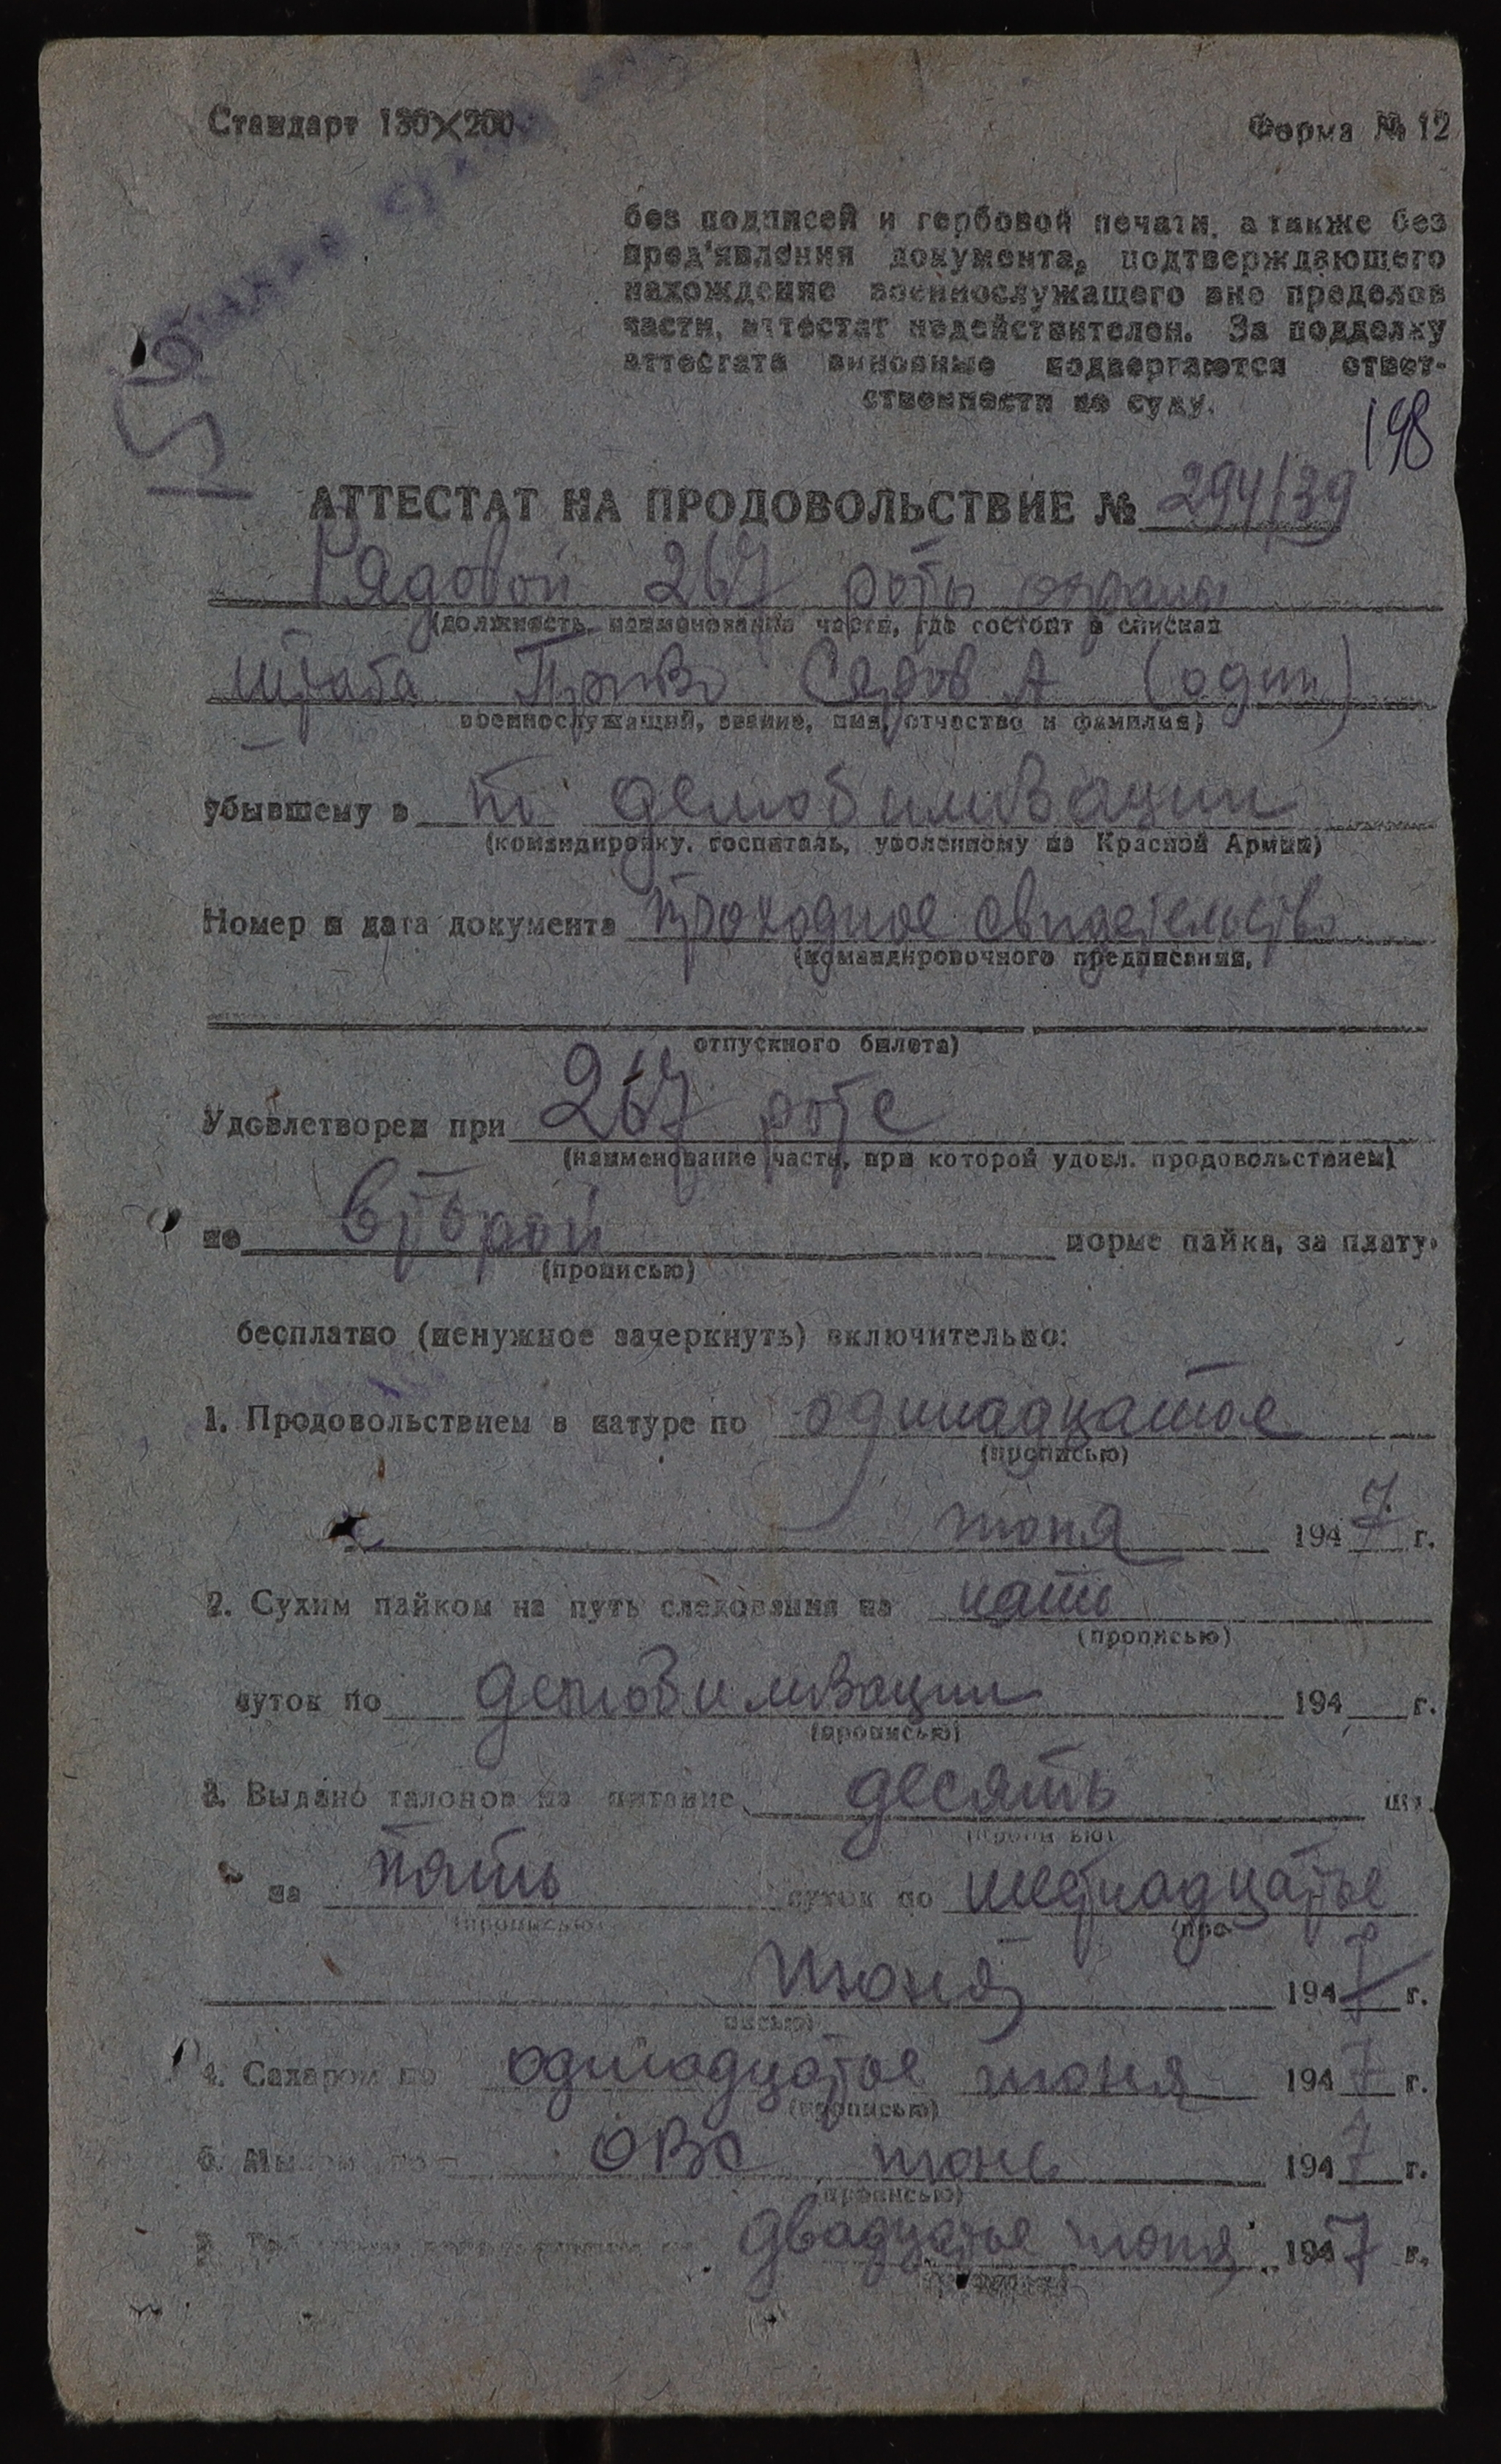 Стандарт 130×200
Форма № 12
без подписей и гербовой печати, а также без
пред'явления документа, подтверждающего
нахождение военнослужащего вне пределов
части, аттестат недействителен. За подделку
аттестата виновные подвергаются ответ-
ственности по суду.
198
АТТЕСТАТ НА ПРОДОВОЛЬСТВИЕ № 294/39
Рядовой 267 роты охраны
(должность, наименование части, где состоит в списках
штаба ПриВо Серов А (один)
военнослужащий, звание, имя, отчество и фамилия)
убывшему в по демобилизации
(командировку, госпиталь, уволенному из Красной Армии)
Номер и дата документа проходное свидетельство
(командировочного предписания,
отпускного билета)
Удовлетворен при 267 роте
(наименование части, при которой удовл. продовольствием)
по второй норме пайка, за плату,
(прописью)
бесплатно (ненужное зачеркнуть) включительно:
1. Продовольствием в натуре по одинадцатое
(прописью)
июня 1947 г.
2. Сухим пайком на путь следования на
(прописью)
суток по демобилизации 194 г.
(прописью)
3. Выдано талонов на питание десять шт.
на пять суток по
(прописью) (про-
июня 1947 г.
писью)
4. Сахаром по одинадцатое июня 1947 г.
(прописью)
Мылом по июнь 1947 г.
(прописью)
двадцатое июня 1947 г.